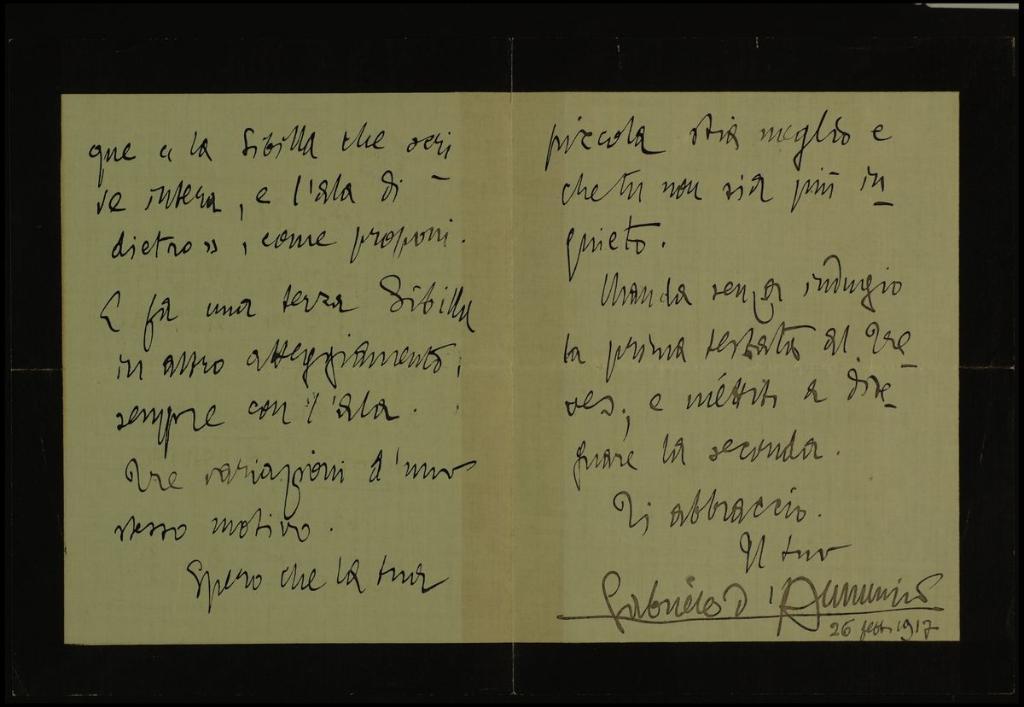 que « la Sibilla che scri
ve intera, e l'ala di –
dietro », come proponi.
E fa una terza Sibilla
in altro atteggiamento,
sempre con l'ala.
Tre variazioni d'uno
stesso motivo.
Spero che la tua
piccola stia meglio e
che tu non sia più in
quieto.
Manda senza indugio
la prima testata al Tre–
ves; e méttiti a dise–
gnare la seconda.
Ti abbraccio.
Il tuo
Gabriele d'Annunzio
26 febb. 1917